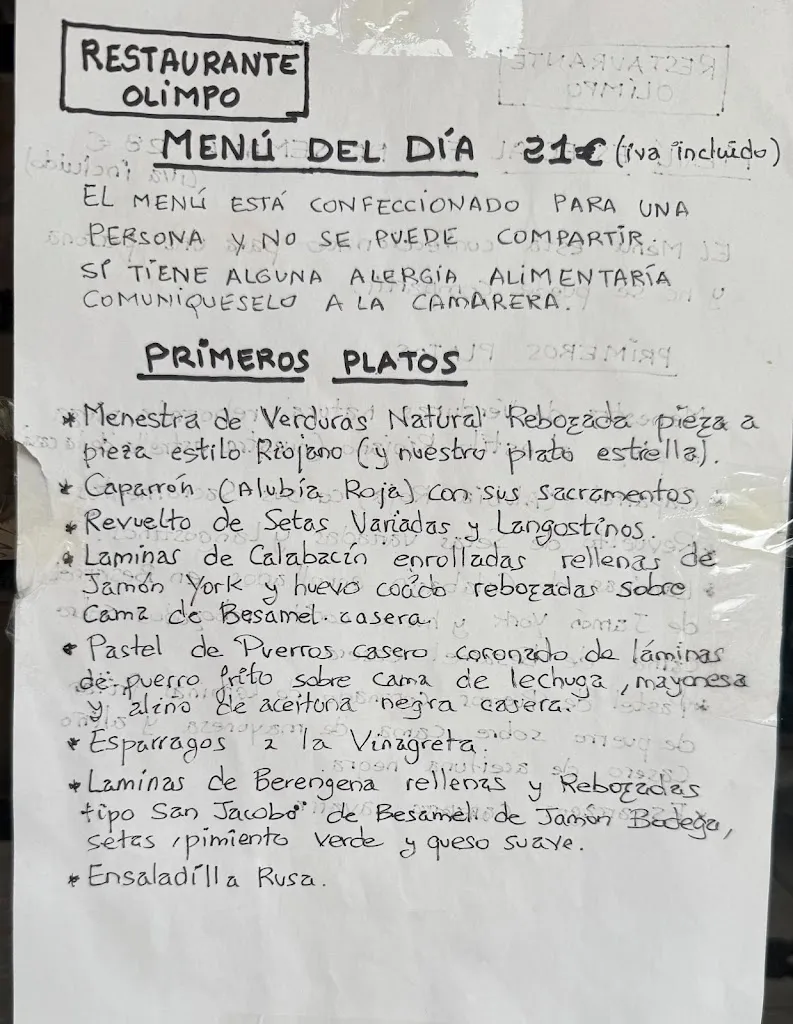 RESTAURANTE
OLIMPO
MENÚ DEL DÍA 21€ (iva incluido)
EL MENÚ ESTÁ CONFECCIONADO PARA UNA
PERSONA Y NO SE PUEDE COMPARTIR.
SI TIENE ALGUNA ALERGÍA ALIMENTARÍA
COMUNIQUESELO A LA CAMARERA.
PRIMEROS PLATOS
* Menestra de Verduras Natural Rebozada pieza a
pieza estilo Riojano (y nuestro plato estrella).
* Caparrón (Alubia Roja) con sus sacramentos
* Revuelto de Setas Variadas y Langostinos.
* Laminas de Calabacín enrolladas rellenas de
Jamón York y huevo cocido rebozadas sobre
cama de Besamel casera.
* Pastel de Puerros casero coronado de láminas
de puerro frito sobre cama de lechuga, mayonesa
y aliño de aceituna negra casera.
* Esparragos a la Vinagreta.
* Laminas de Berengena rellenas y Rebozadas
tipo San Jacobo de Besamel de Jamón Bodega,
setas, pimiento verde y queso suave.
* Ensaladilla Rusa.